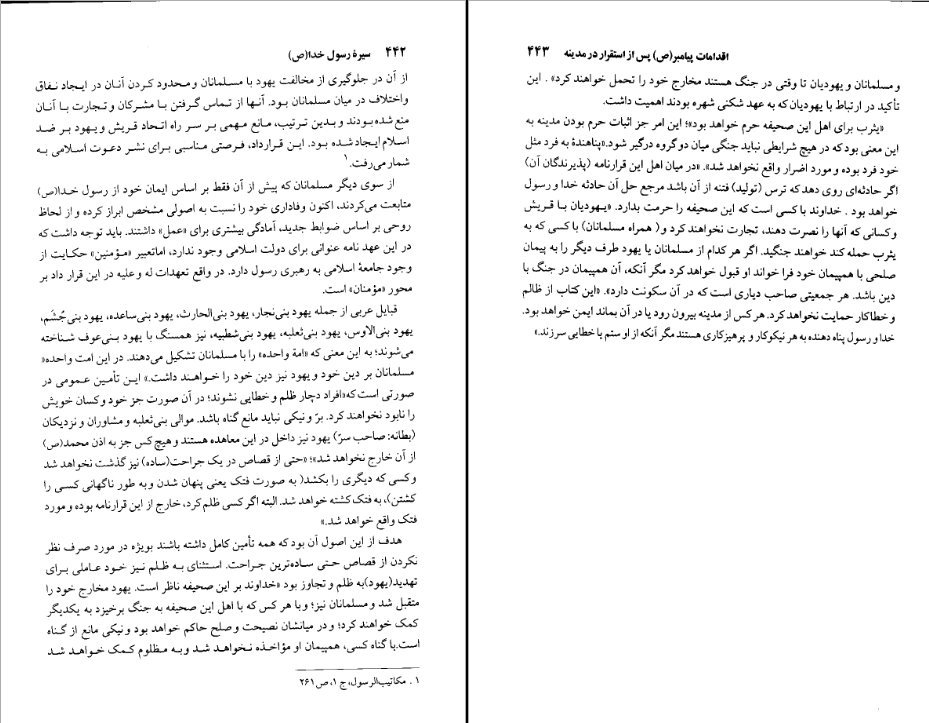 ۴۴۲ سیرۀ رسول خدا(ص)
از آن در جلوگیری از مخالفت یهود با مسلمانان و محدود کردن آنان در ایجاد نفاق
واختلاف در میان مسلمانان بود. آنها از تماس گرفتن با مشرکان و تجارت با آنان
منع شده بودند و بدین ترتیب، مانع مهمی بر سر راه اتحاد قریش و یهود بر ضد
اسلام ایجاد شده بود. این قرارداد، فرصتی مناسبی برای نشر دعوت اسلامی به
شمار می‌رفت.۱
از سوی دیگر مسلمانان که پیش از آن فقط بر اساس ایمان خود از رسول خدا(ص)
متابعت می‌کردند، اکنون وفاداری خود را نسبت به اصولی مشخص ابراز کرده و از لحاظ
روحی بر اساس ضوابط جدید، آمادگی بیشتری برای «عمل» داشتند. باید توجه داشت که
در این عهد نامه عنوانی برای دولت اسلامی وجود ندارد، اماتعبیر «مؤمنین» حکایت از
وجود جامعۀ اسلامی به رهبری رسول دارد. در واقع تعهدات له و علیه در این قرار داد بر
محور «مؤمنان» است.
قبایل عربی از جمله یهود بنی‌نجار، یهود بنی‌الحارث، یهود بنی‌ساعده، یهود بنی‌جُشَم،
یهود بنی‌الاوس، یهود بنی‌ثعلبه، یهود بنی‌شطیبه، نیز همسنگ با یهود بنی‌عوف شناخته
می‌شوند؛ به این معنی که «امة واحده» را با مسلمانان تشکیل می‌دهند. در این امت واحده»
مسلمانان بر دین خود و یهود نیز دین خود را خواهند داشت.» این تأمین عمومی در
صورتی است که«افراد دچار ظلم و خطایی نشوند؛ در آن صورت جز خود وکسان خویش
را نابود نخواهند کرد. برّ و نیکی نباید مانع گناه باشد. موالی بنی‌ثعلبه و مشاوران و نزدیکان
(بطانه: صاحب سرّ) یهود نیز داخل در این معاهده هستند و هیچ کس جز به اذن محمد(ص)
از آن خارج نخواهد شد»؛ «حتی از قصاص در یک جراحت(ساده) نیز گذشت نخواهد شد
وکسی که دیگری را بکشد( به صورت فتک یعنی پنهان شدن و به طور ناگهانی کسی را
کشتن)، به فتک کشته خواهد شد. البته اگر کسی ظلم کرد، خارج از این قرارنامه بوده و مورد
فتک واقع خواهد شد.»
هدف از این اصول آن بود که همه تأمین کامل داشته باشند بویژه در مورد صرف نظر
نکردن از قصاص حتی ساده‌ترین جراحت. استثنای به ظلم نیز خود عاملی برای
تهدید(یهود)به ظلم و تجاوز بود «خداوند بر این صحیفه ناظر است. یهود مخارج خود را
متقبل شد و مسلمانان نیز؛ و با هر کس که با اهل این صحیفه به جنگ برخیزد به یکدیگر
کمک خواهند کرد؛ و در میانشان نصیحت و صلح حاکم خواهد بود و نیکی مانع از گناه
است.با گناه کسی، همپیمان او مؤاخذه نخواهد شد و به مظلوم کمک خواهد شد
۱ . مکاتیب‌الرسول، ج ۱، ص ۲۶۱
اقدامات پیامبر(ص) پس از استقرار در مدینه ۴۴۳
و مسلمانان و یهودیان تا وقتی در جنگ هستند مخارج خود را تحمل خواهند کرد» . این
تأکید در ارتباط با یهودیان که به عهد شکنی شهره بودند اهمیت داشت.
«یثرب برای اهل این صحیفه حرم خواهد بود»؛ این امر جز اثبات حرم بودن مدینه به
این معنی بود که در هیچ شرایطی نباید جنگی میان دوگروه درگیر شود.«پناهندۀ به فرد مثل
خود فرد بوده و مورد اضرار واقع نخواهد شد». «در میان اهل این قرارنامه (پذیرندگان آن)
اگر حادثه‌ای روی دهد که ترس (تولید) فتنه از آن باشد مرجع حل آن حادثه خدا و رسول
خواهد بود . خداوند با کسی است که این صحیفه را حرمت بدارد. «یهودیان با قریش
وکسانی که آنها را نصرت دهند، تجارت نخواهند کرد و ( همراه مسلمانان) با کسی که به
یثرب حمله کند خواهند جنگید. اگر هر کدام از مسلمانان یا یهود طرف دیگر را به پیمان
صلحی با همپیمان خود فرا خواند او قبول خواهد کرد مگر آنکه، آن همپیمان در جنگ با
دین باشد. هر جمعیتی صاحب دیاری است که در آن سکونت دارد». «این کتاب از ظالم
و خطاکار حمایت نخواهد کرد. هر کس از مدینه بیرون رود یا در آن بماند ایمن خواهد بود.
خدا و رسول پناه دهنده به هر نیکوکار و پرهیزکاری هستند مگر آنکه از او ستم یا خطایی سرزند.»